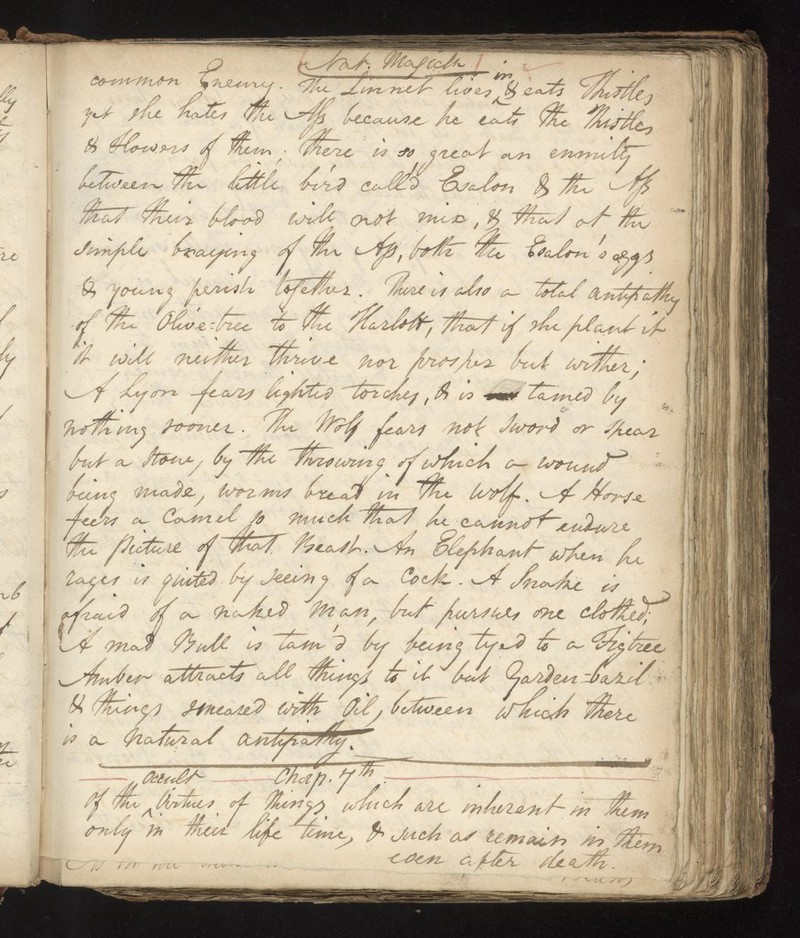 Nat. Magick
common Enemy. The Linnet lives in & eats Thistles
yet she hates the Ass because he eats the Thistles
& Flowers of them; there is so great an enmity
between the little bird call'd Esalon & the Ass
that their blood will not mix, & that at the
simple braying of the Ass, both the Esalon's eggs
& young perish together. There is also a total antipathy
of the Olive=tree to the Harlott, that if she plant it
it will neither thrive nor prosper but wither;
A Lyon fears lighted torches, & is tamed by
nothing sooner. The Wolf fears not sword or spear
but a stone, by the throwing of which a wound
being made, worms bread in the wolf. A Horse
feers a Camel so much that he cannot endure
the picture of that Beast. An Elephant when he
rages is quited by seeing of a Cock. A Snake is
afraid of a naked man, but pursues one clothed;
A mad Bull is tam'd by being tyed to a Figtree
Amber attracts all things to it but Garden=bazil
& things smeared with Oil, between which there
is a natural antipathy.
Chap. 7th
Of the occult Virtues of things which are inherent in them
only in their life time, & such as remain in them
even after death.